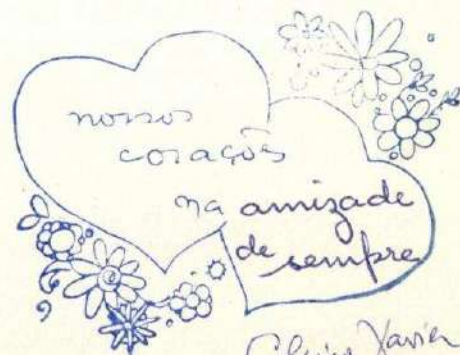 nossos
corações
na amizade
de sempre
Chico Xavier